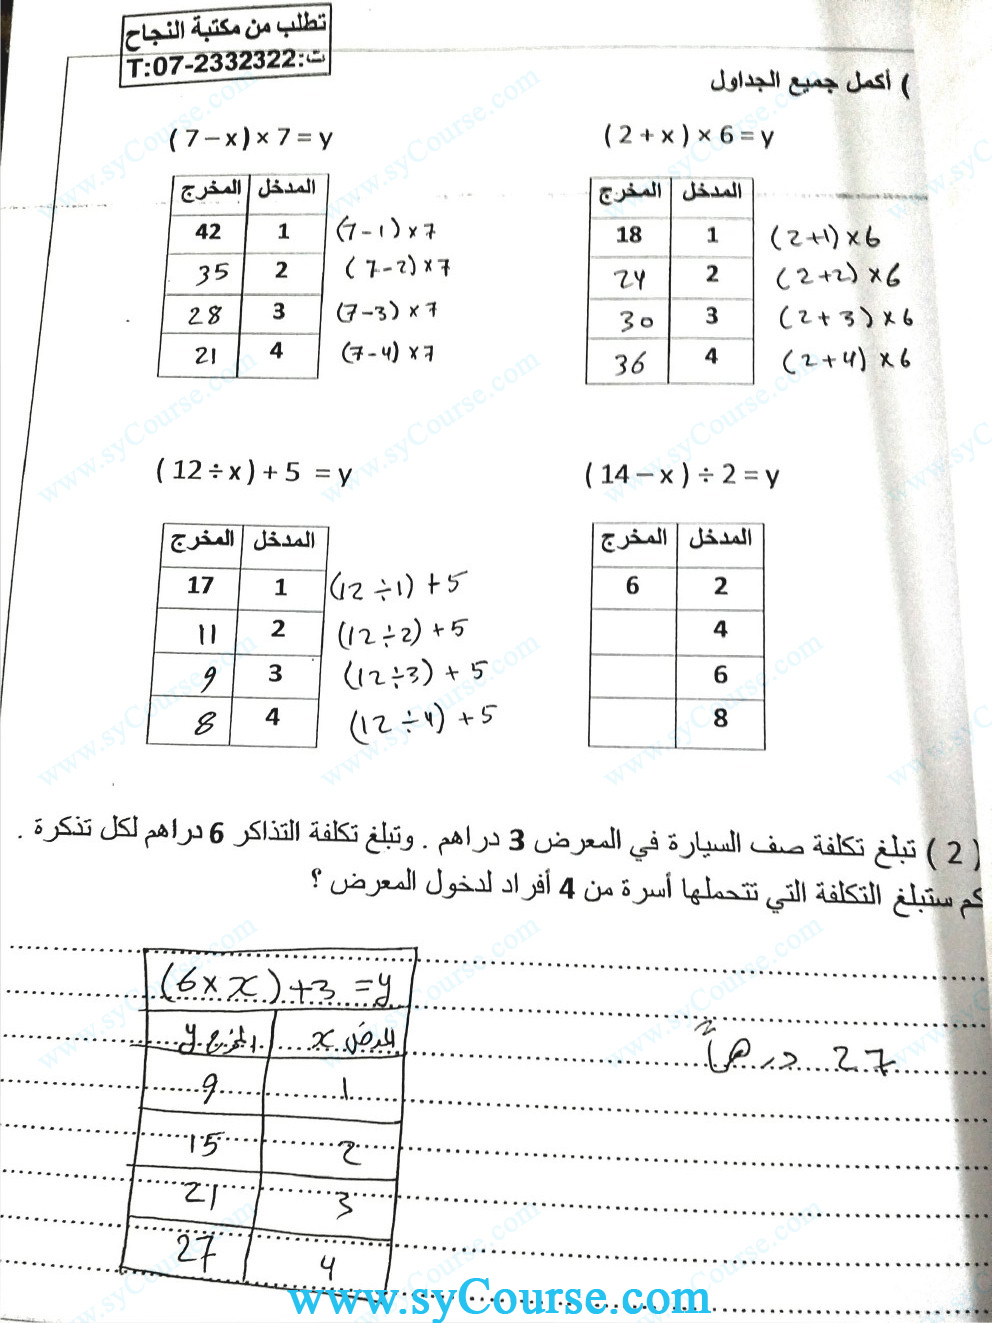 تطلب من مكتبة النجاح
ت:T:07-2332322
) أكمل جميع الجداول
( 2 + x ) × 6 = y
المدخل المخرج
1 18 (2+1) x 6
2 24 (2+2) x 6
3 30 (2+3) x 6
4 36 (2+4) x 6
( 7 – x ) × 7 = y
المدخل المخرج
1 42 (7-1) x 7
2 35 (7-2) x 7
3 28 (7-3) x 7
4 21 (7-4) x 7
( 14 – x ) ÷ 2 = y
المدخل المخرج
2 6
4
6
8
( 12 ÷ x ) + 5 = y
المدخل المخرج
1 17 (12 ÷ 1) + 5
2 11 (12 ÷ 2) + 5
3 9 (12 ÷ 3) + 5
4 8 (12 ÷ 4) + 5
( 2 ) تبلغ تكلفة صف السيارة في المعرض 3 دراهم . وتبلغ تكلفة التذاكر 6 دراهم لكل تذكرة .
كم ستبلغ التكلفة التي تتحملها أسرة من 4 أفراد لدخول المعرض ؟
(6 x x) + 3 = y
x المخرج y
1 9
2 15
3 21
4 27
27 درهماً
www.syCourse.com